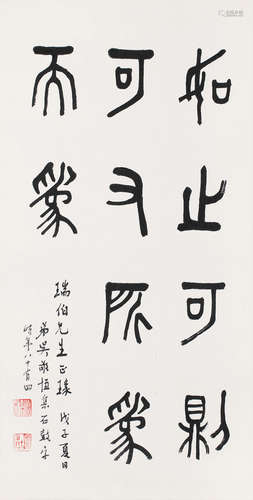 如止可則
可又所為
而為
瑞伯先生正瑑 戊子夏日
弟吳敬恆集石鼓字
時年八十有四